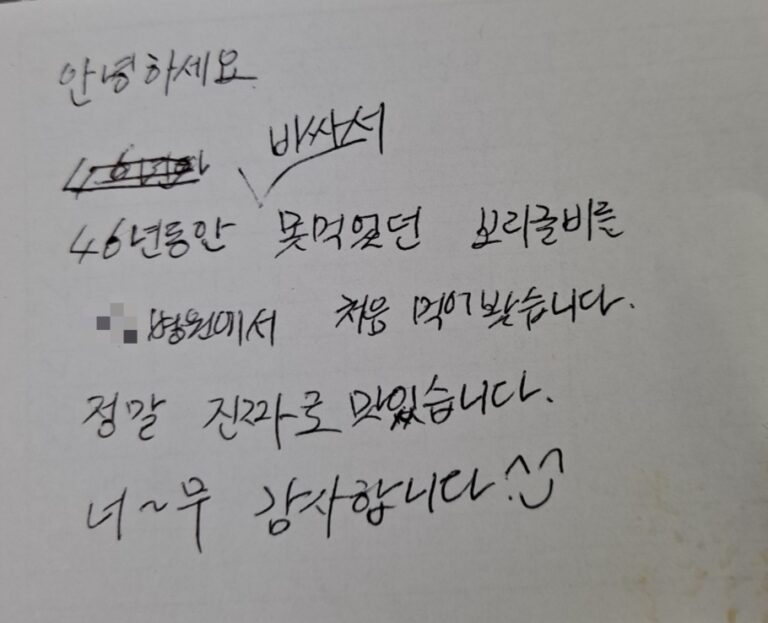 안녕하세요
비싸서
46년동안 못먹었던 보리굴비를
병원에서 처음 먹어봤습니다.
정말 진짜로 맛있습니다.
너~무 감사합니다^^